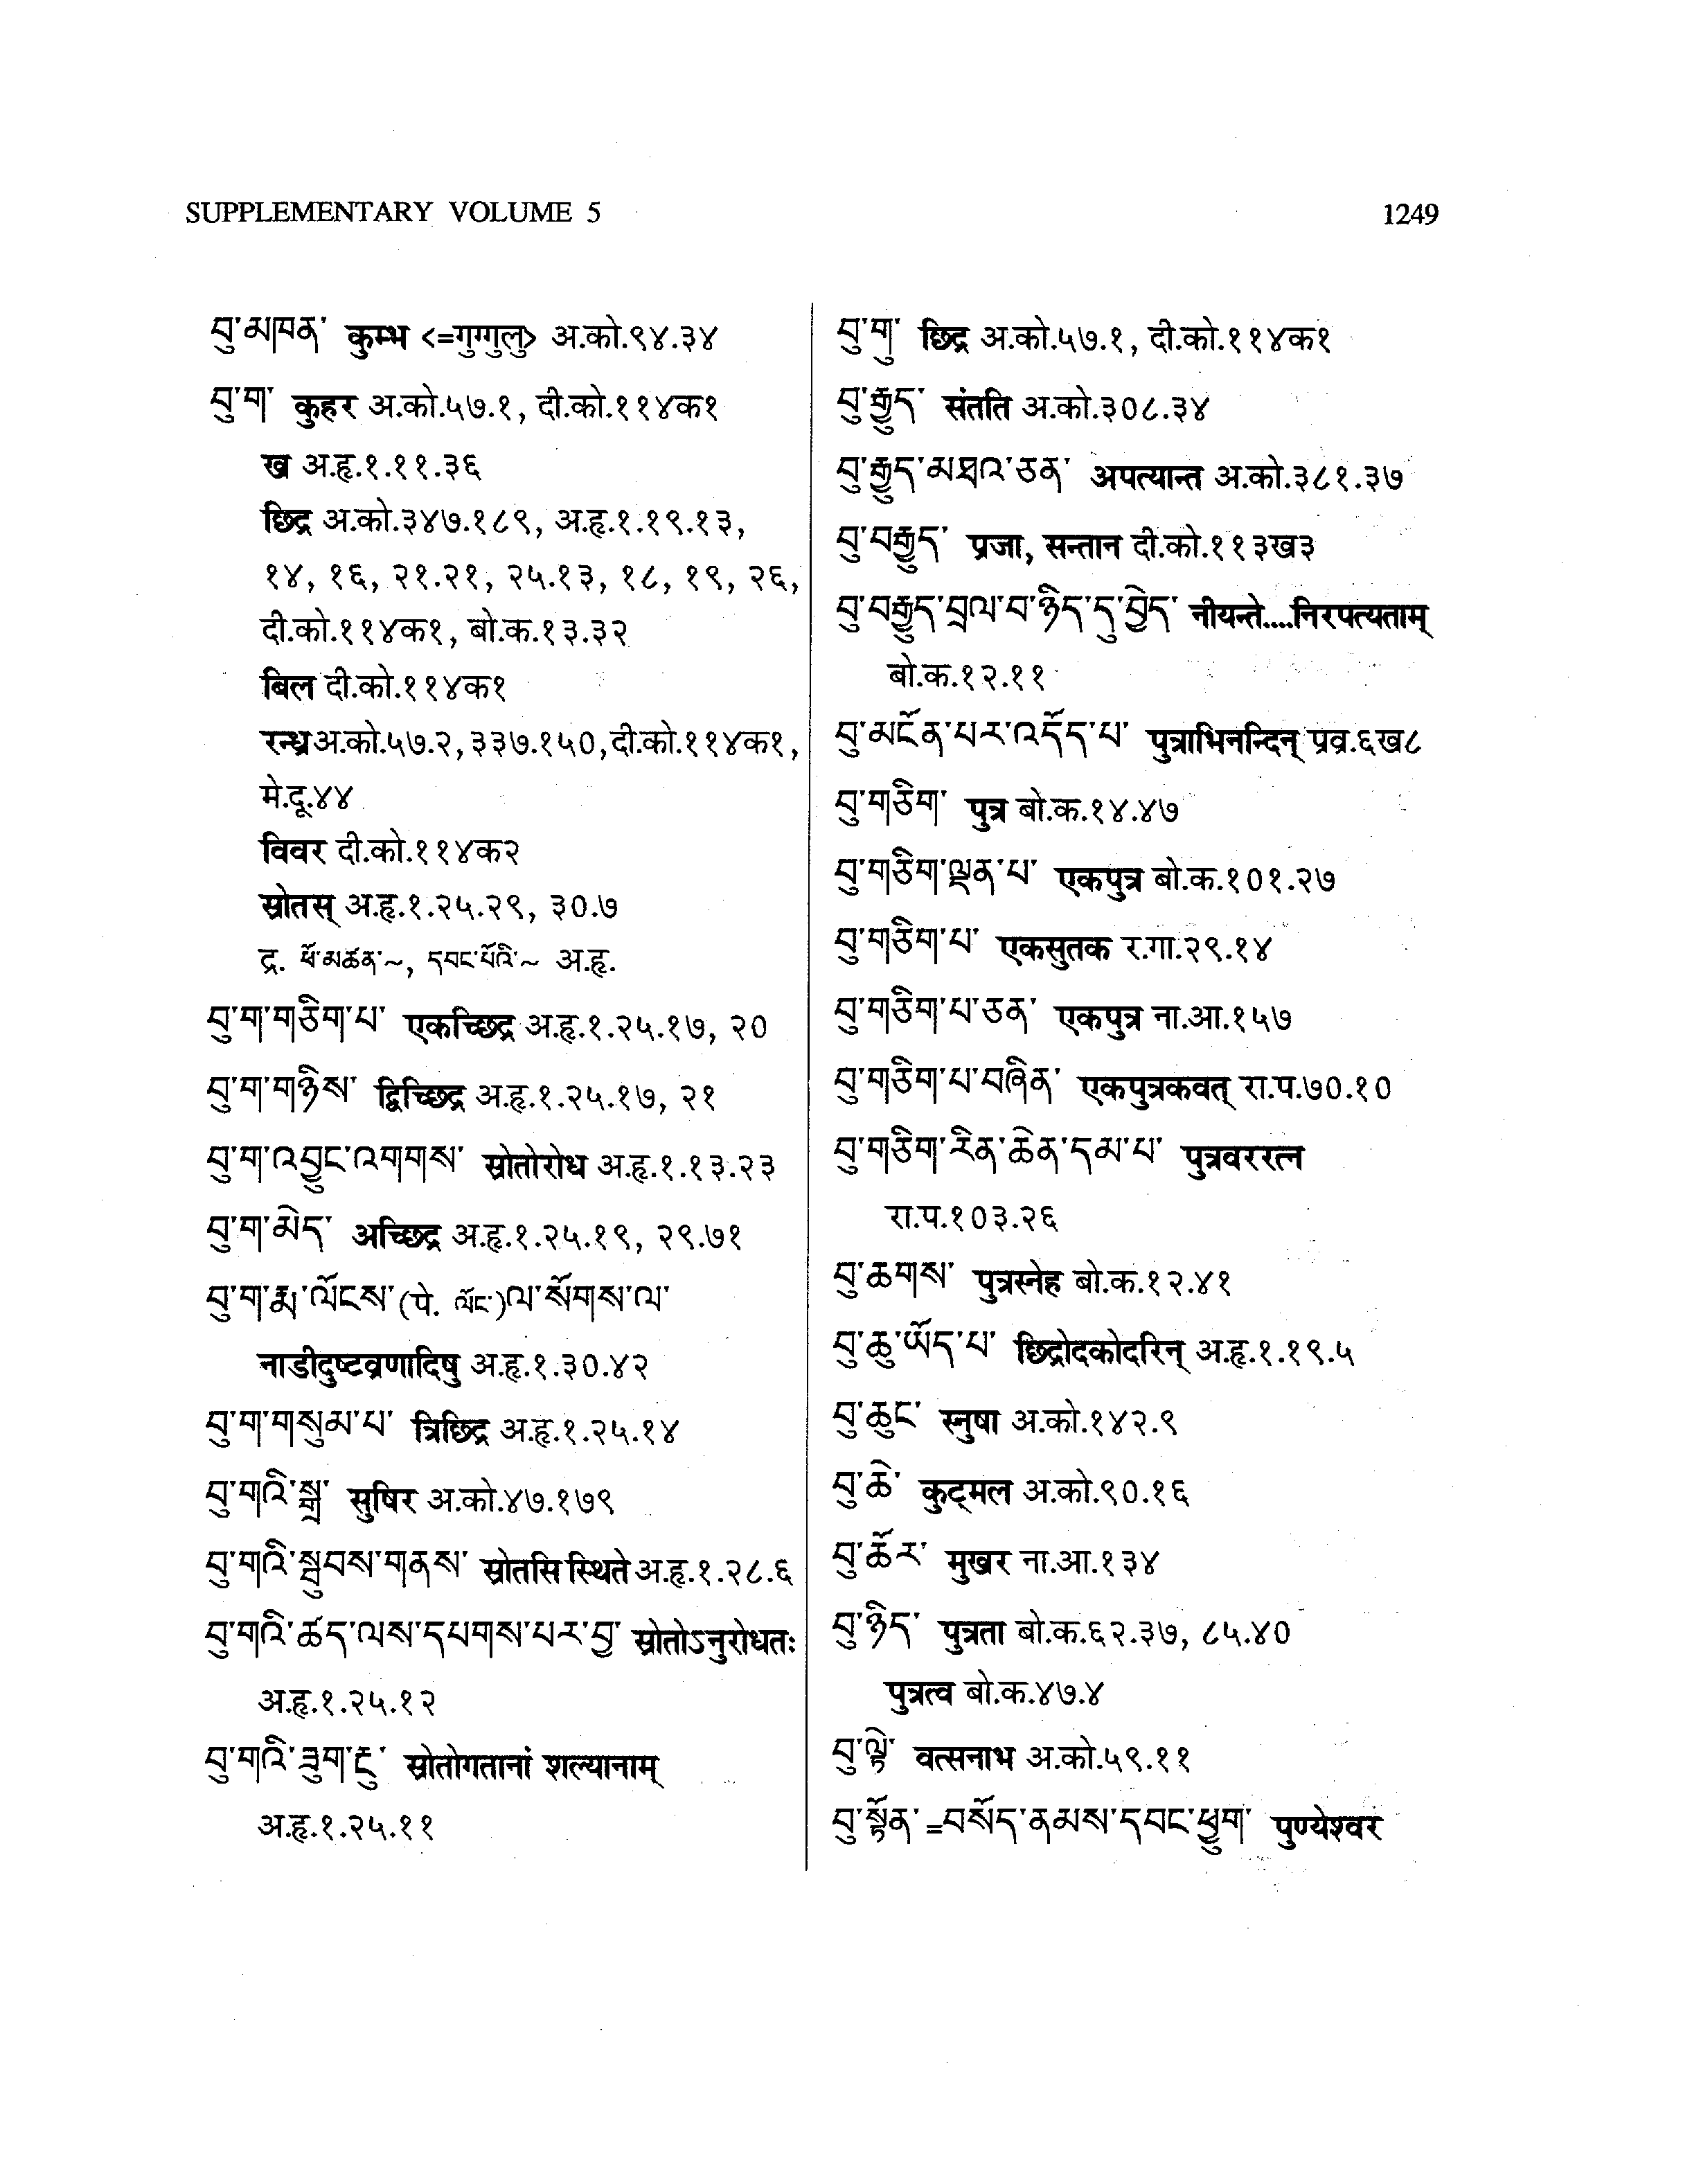 SUPPLEMENTARY VOLUME 5
1249
བུ་མཁན་ कुम्भ <=गुग्गुलु> अ.को.९४.३४
བུ་ག་ कुहर अ.को.५७.१, दी.को.११४क१
ख अ.हृ.१.११.३६
छिद्र अ.को.३४७.१८९, अ.हृ.१.१९.१३,
१४, १६, २१.२१, २५.१३, १८, १९, २६,
दी.को.११४क१, बो.क.१३.३२
बिल दी.को.११४क१
रन्ध्र अ.को.५७.२, ३३७.१५०, दी.को.११४क१,
मे.दू.४४
विवर दी.को.११४क२
स्रोतस् अ.हृ.१.२५.२९, ३०.७
द्र. ཕོ་མཚན་~, དབང་པོའི་~ अ.हृ.
བུ་ག་གཅིག་པ་ एकच्छिद्र अ.हृ.१.२५.१७, २०
བུ་ག་གཉིས་ द्विच्छिद्र अ.हृ.१.२५.१७, २१
བུ་ག་འབྱུང་འགགས་ स्रोतोरोध अ.हृ.१.१३.२३
བུ་ག་མེད་ अच्छिद्र अ.हृ.१.२५.१९, २९.७१
བུ་ག་རྨ་ལོངས་(पे. ལོང་)ལ་སོགས་ལ་
नाडीदुष्टव्रणादिषु अ.हृ.१.३०.४२
བུ་ག་གསུམ་པ་ त्रिछिद्र अ.हृ.१.२५.१४
བུ་གའི་སྒྲ་ सुषिर अ.को.४७.१७९
བུ་གའི་སྦུབས་གནས་ स्रोतसि स्थिते अ.हृ.१.२८.६
བུ་གའི་ཚད་ལས་དཔགས་པར་བྱ་ स्रोतोऽनुरोधतः
अ.हृ.१.२५.१२
བུ་གའི་ཟུག་རྔུ་ स्रोतोगतानां शल्यानाम्
अ.हृ.१.२५.११
བུ་གུ་ छिद्र अ.को.५७.१, दी.को.११४क१
བུ་རྒྱུད་ संतति अ.को.३०८.३४
བུ་རྒྱུད་མཐའ་ཅན་ अपत्यान्त अ.को.३८१.३७
བུ་བརྒྱུད་ प्रजा, सन्तान दी.को.११३ख३
བུ་བརྒྱུད་བྲལ་བ་ཉིད་དུ་བྱེད་ नीयन्ते....निरपत्यताम्
बो.क.१२.११
བུ་མངོན་པར་འདོད་པ་ पुत्राभिनन्दिन् प्रव्र.६ख८
བུ་གཅིག་ पुत्र बो.क.१४.४७
བུ་གཅིག་ལྡན་པ་ एकपुत्र बो.क.१०१.२७
བུ་གཅིག་པ་ एकसुतक र.गा.२९.१४
བུ་གཅིག་པ་ཅན་ एकपुत्र ना.आ.१५७
བུ་གཅིག་པ་བཞིན་ एकपुत्रकवत् रा.प.७०.१०
བུ་གཅིག་རིན་ཆེན་དམ་པ་ पुत्रवररत्न
रा.प.१०३.२६
བུ་ཆགས་ पुत्रस्नेह बो.क.१२.४१
བུ་ཆུ་ཡོད་པ་ छिद्रोदकोदरिन् अ.हृ.१.१९.५
བུ་ཆུང་ स्नुषा अ.को.१४२.९
བུ་ཆེ་ कुट्मल अ.को.९०.१६
བུ་ཆོར་ मुखर ना.आ.१३४
བུ་ཉིད་ पुत्रता बो.क.६२.३७, ८५.४०
पुत्रत्व बो.क.४७.४
བུ་ལྟེ་ वत्सनाभ अ.को.५९.११
བུ་སྟོན་=བསོད་ནམས་དབང་ཕྱུག་ पुण्येश्वर